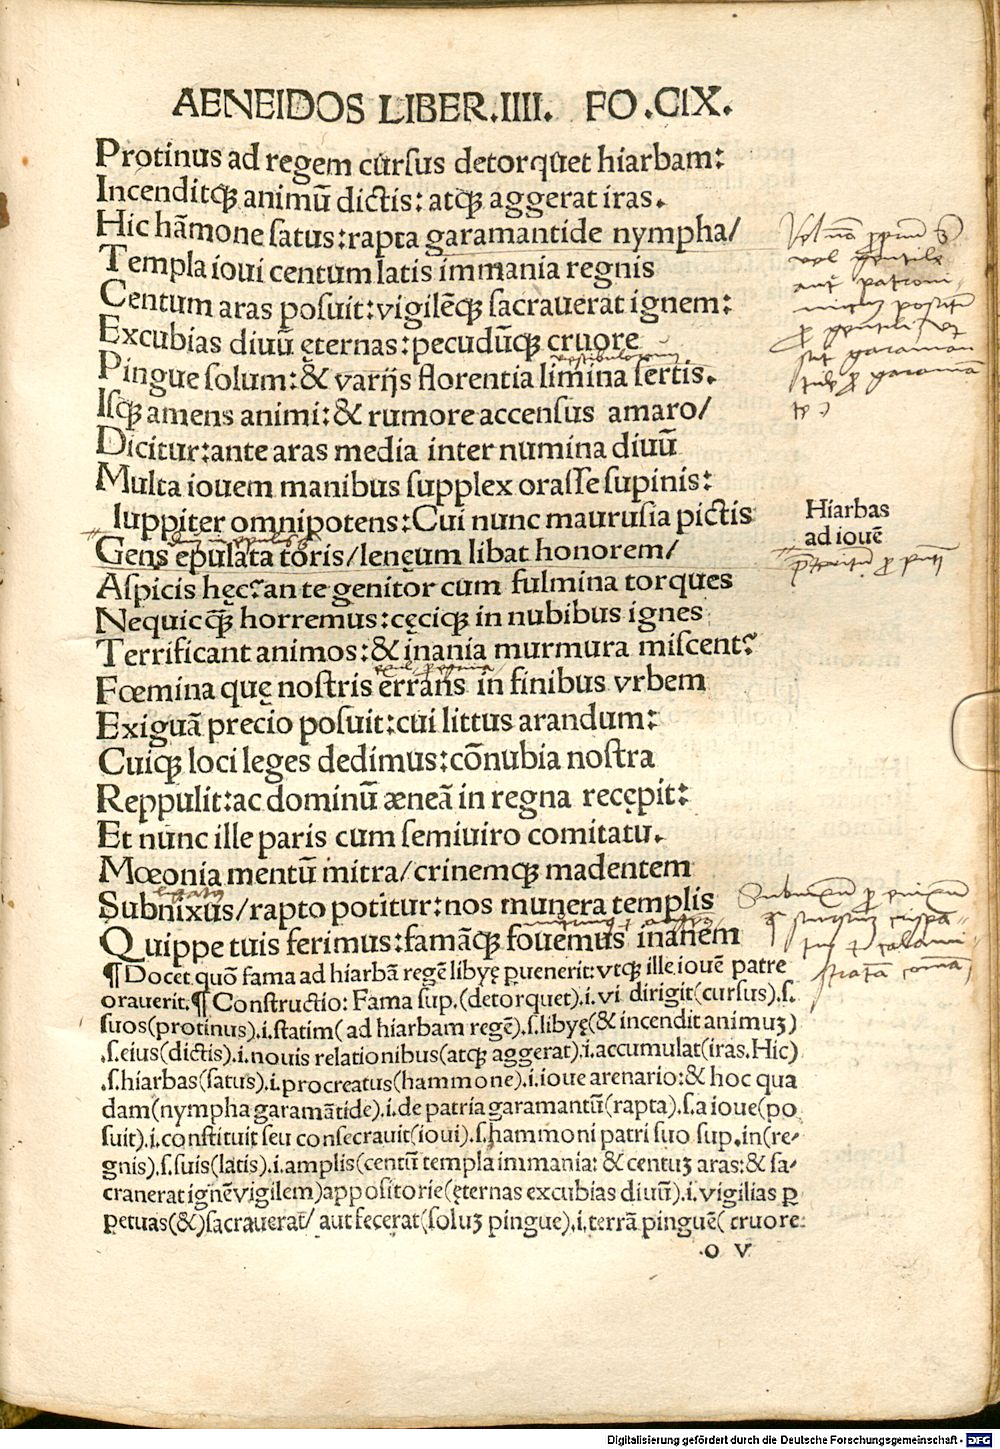 AENEIDOS LIBER.IIII. FO.CIX.
Protinus ad regem curſus detorquet hiarbam:
Incenditqꝫ animū dictis: atqꝫ aggerat iras.
Hic hāmone ſatus:rapta garamantide nympha/
Templa ioui centum latis immania regnis
Centum aras poſuit:vigilēqꝫ sacrauerat ignem:
Excubias diuū ęternas:pecudūqꝫ cruore
vestibulorum
Pingue ſolum:& varijs florentia limina ſertis.
Iſqꝫ amens animi:& rumore accenſus amaro/
Dicitur:ante aras media inter numina diuū
Multa iouem manibus ſupplex oraſſe ſupinis:
Iuppiter omnipotens:Cui nunc mauruſia pictis
Hiarbas
ad iouē
Gens epulata toris/lenęum libat honorem/
Aſpicis hęc?an te genitor cum fulmina torques
Nequicꝗ̄ horremus:cęciqꝫ in nubibus ignes
Terrificant animos:& inania murmura miſcent?
Fœmina quę noſtris errans in finibus vrbem
Exiguā precio poſuit:cui littus arandum:
Cuiqꝫ loci leges dedimus:cōnubia noſtra
Reppulit:ac dominū æneā in regna recępit:
Et nunc ille paris cum ſemiuiro comitatu.
Mœonia mentū mitra/crinemqꝫ madentem
ligatus
Subnixus/rapto potitur:nos munera templis
Quippe tuis ferimus:famāqꝫ fouemus inanem
¶ Docet quō fama ad hiarbā regē libyę ꝑuenerit:vtqꝫ ille iouē patrē
orauerit.¶ Conſtructio: Fama ſup.(detorquet).i.vi dirigit(curſus).ſ.
ſuos(protinus).i.ſtatim( ad hiarbam regē).ſ.libyę(& incendit animuꝫ)
.ſ.eius(dictis).i.nouis relationibus(atqꝫ aggerat).i.accumulat(iras.Hic)
.ſ.hiarbas(ſatus).i.procreatus(hammone).i.ioue arenario:& hoc qua
dam(nympha garamātide).i.de patria garamantū(rapta).ſ.a ioue(po
ſuit).i.conſtituit ſeu conſecrauit(ioui).ſ.hammoni patri ſuo ſup.in(re-
gnis).ſ.ſuis(latis).i.amplis(centū templa immania: & centuꝫ aras:& ſa-
cranerat ignēvigilem)appoſitorie(ęternas excubias diuū).i.vigilias ꝑ
petuas(&)ſacrauerat/ aut fecerat(ſoluꝫ pingue).i.terrā pinguē( cruore
.o v
Digitalisierung gefördert durch die Deutsche Forschungsgemeinschaft - DFG